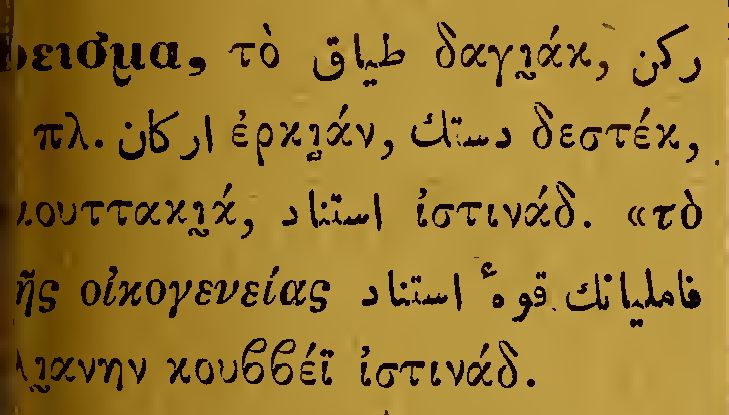 ρεισμα, τὸ طياق δαγι̰άκ, ركن
πλ. اركان ἐρκι̰άν, دستك δεστέκ,
κουττακι̰ά, استناد ἰστινάδ. «τὸ
ῆς οἰκογενείας فامليانك قوهٔ استناد
λι̰ανην κουϐϐέϊ ἰστινάδ.